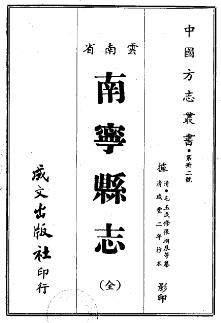 中國方志叢書·第卅二號
據 清·毛玉成修張翊辰等纂
清咸豐二年刊本 影印
雲南省
南寧縣志
(全)
成文出版社印行